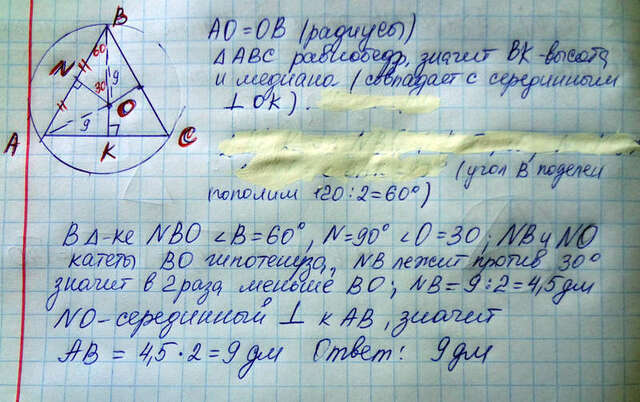 B
60
N
9
30
O
9
A
K
C
AO=OB (радиусы)
△ABC равнобедр, значит BK-высота
и медиана (совпадает с серединным
⊥ OK)
(угол B поделен
пополим 120:2=60°)
В △-ке NBO ∠B=60°, N=90° ∠O=30; NB и NO
катеты BO гипотенуза, NB лежит против 30°
значит в 2 раза меньше BO; NB=9:2=4,5дм
NO-серединный ⊥ к AB, значит
AB = 4,5·2=9 дм Ответ: 9дм